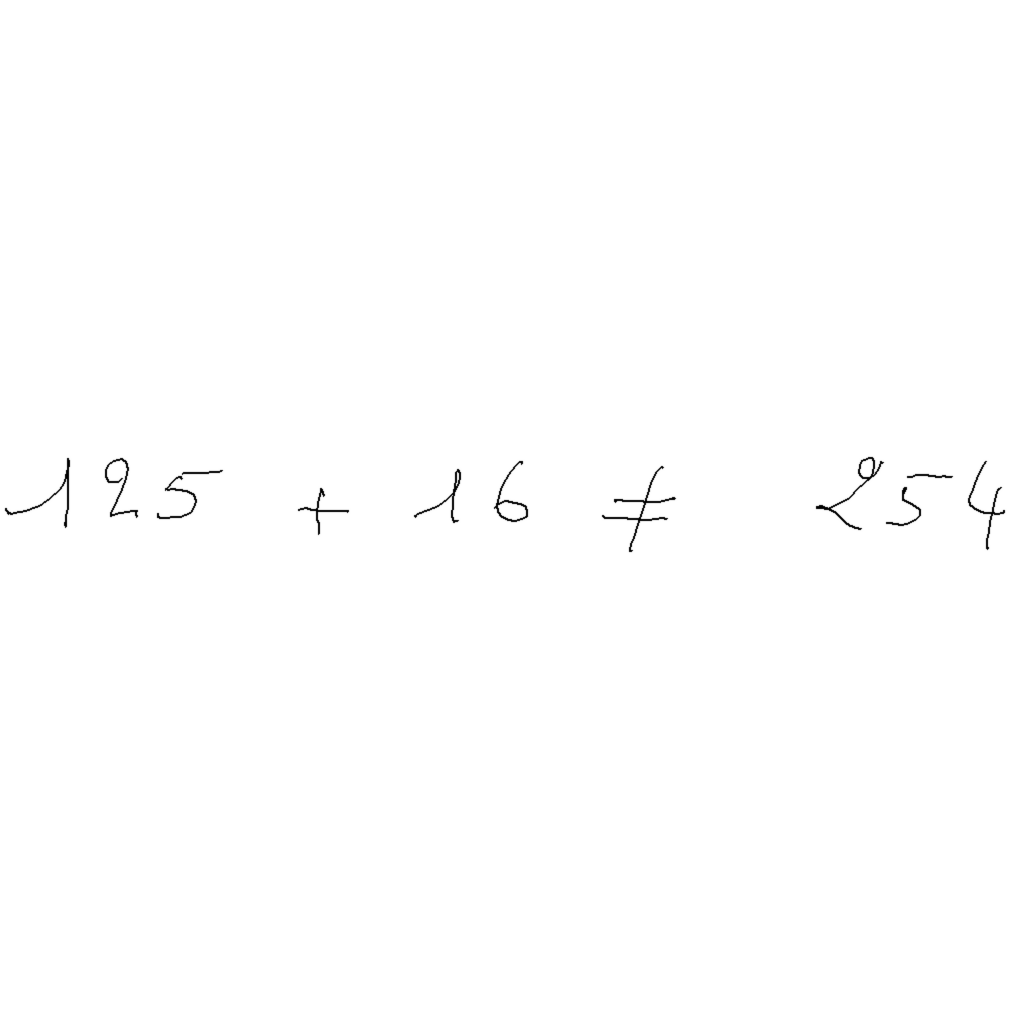 125 + 16 ≠ 254